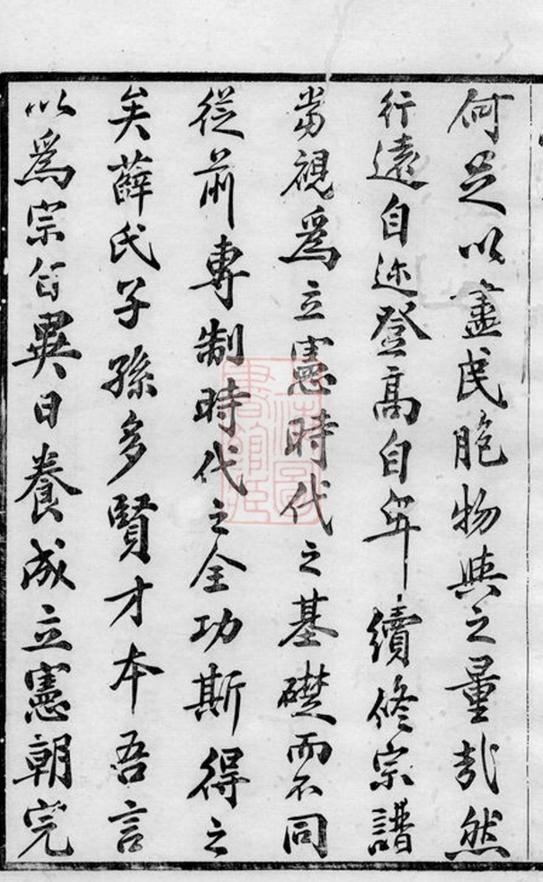 何足以盡民胞物與之量哉然
行遠自邇登高自卑續修宗譜
當視為立憲時代之基礎而不同
從前專制時代之全功斯得之
矣薛氏子孫多賢才本吾言
以為宗旨異日養成立憲朝完